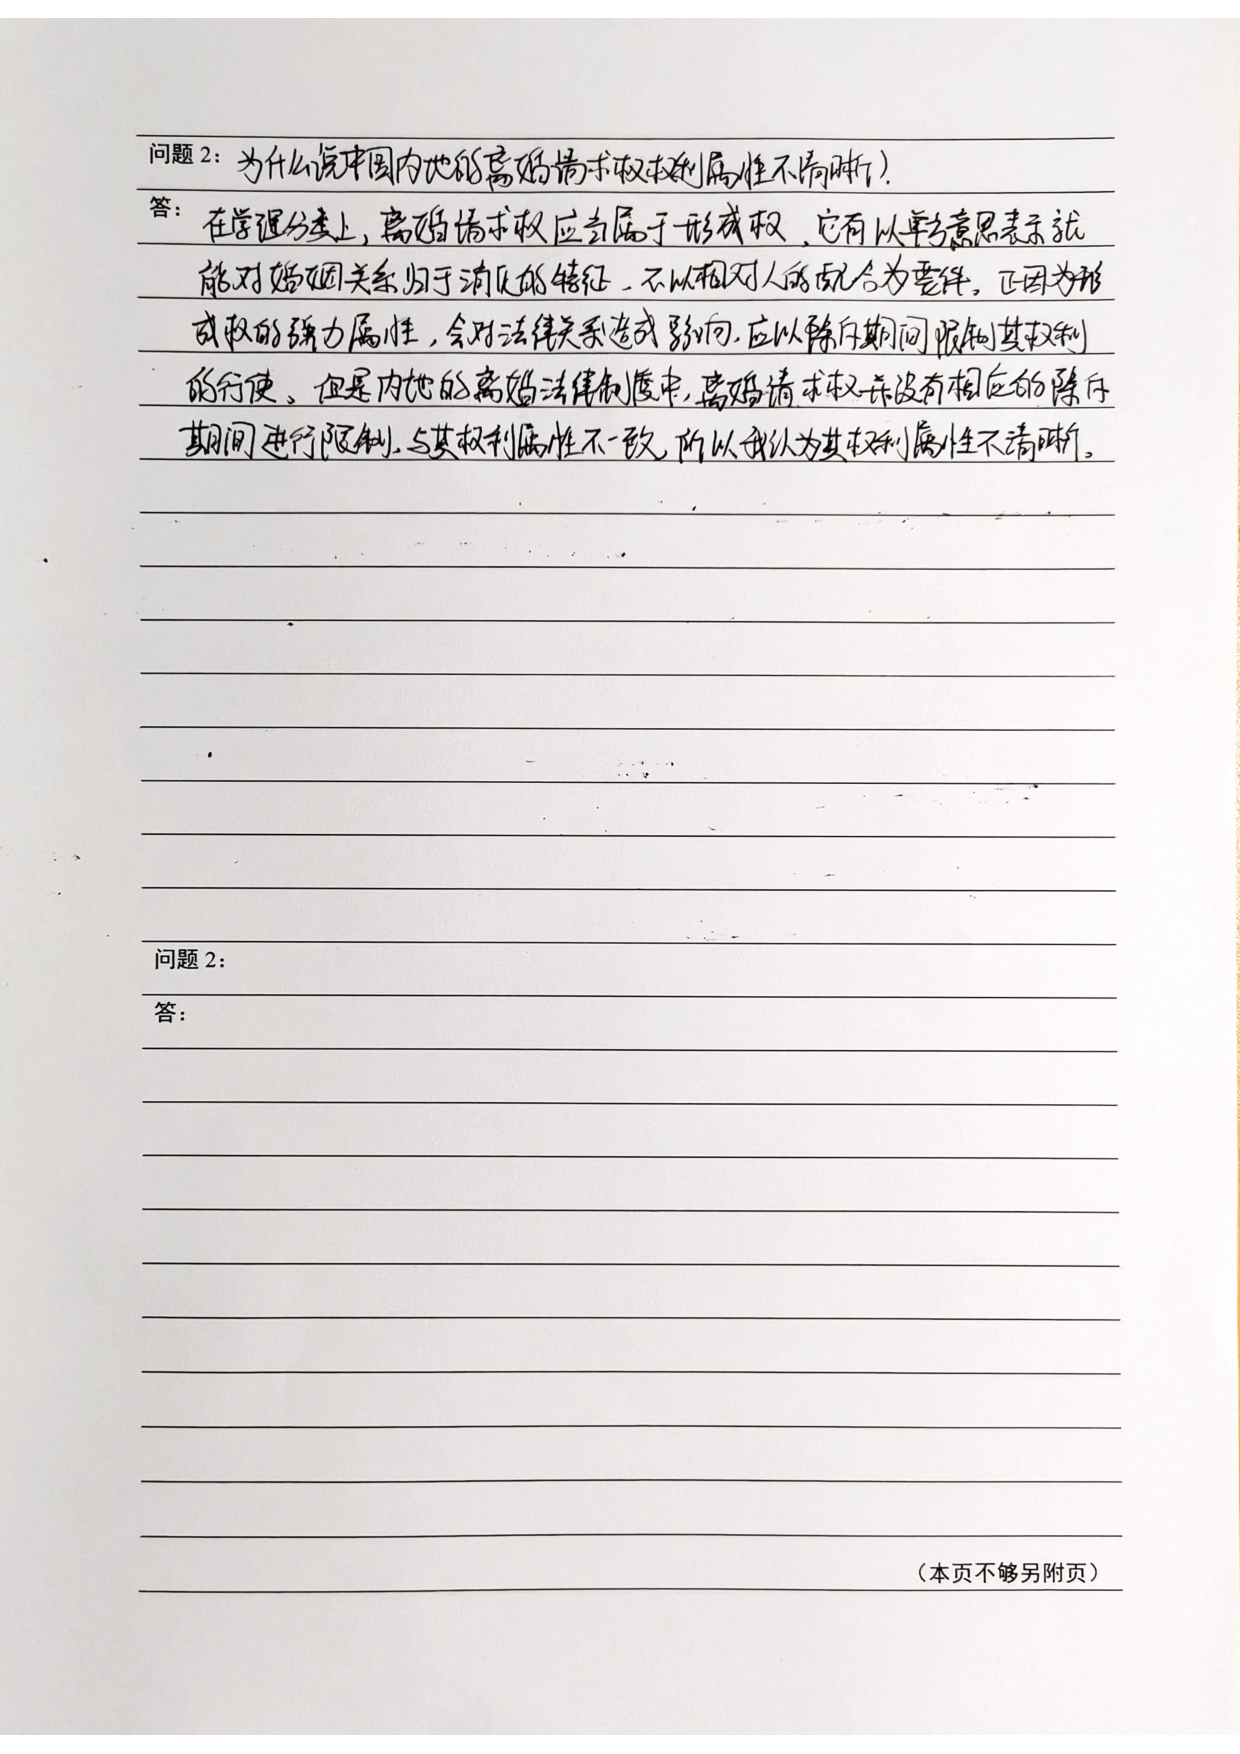 问题 2：为什么说中国内地的离婚请求权权利属性不清晰？
答：在学理分类上，离婚请求权应当属于形成权，它有以单方意思表示就
能对婚姻关系归于消灭的特征，不以相对人的配合为要件。正因为形
成权的强力属性，会对法律关系造成影响，应以除斥期间限制其权利
的行使。但是内地的离婚法律制度中，离婚请求权并没有相应的除斥
期间进行限制，与其权利属性不一致，所以我认为其权利属性不清晰。
问题 2：
答：
（本页不够另附页）